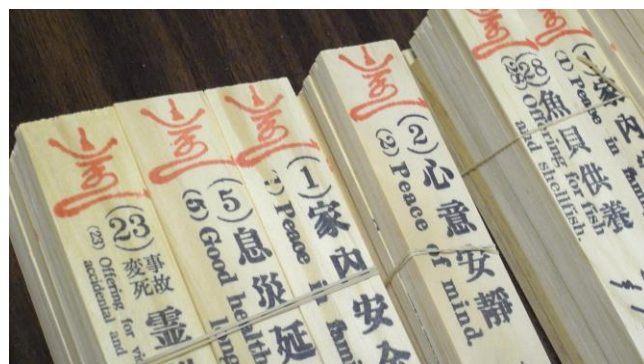 (23) 事故変死 霊
(23) Offering for vi
accidental and
(5) 息災延
(5) Good health
long
(1) 家内安全
(1) Peace in fami
(2) 心意安静
(2) Peace of mind.
(28) 魚貝供養
(28) Offering for fish
and shellfish.
家内
(1) Peace in